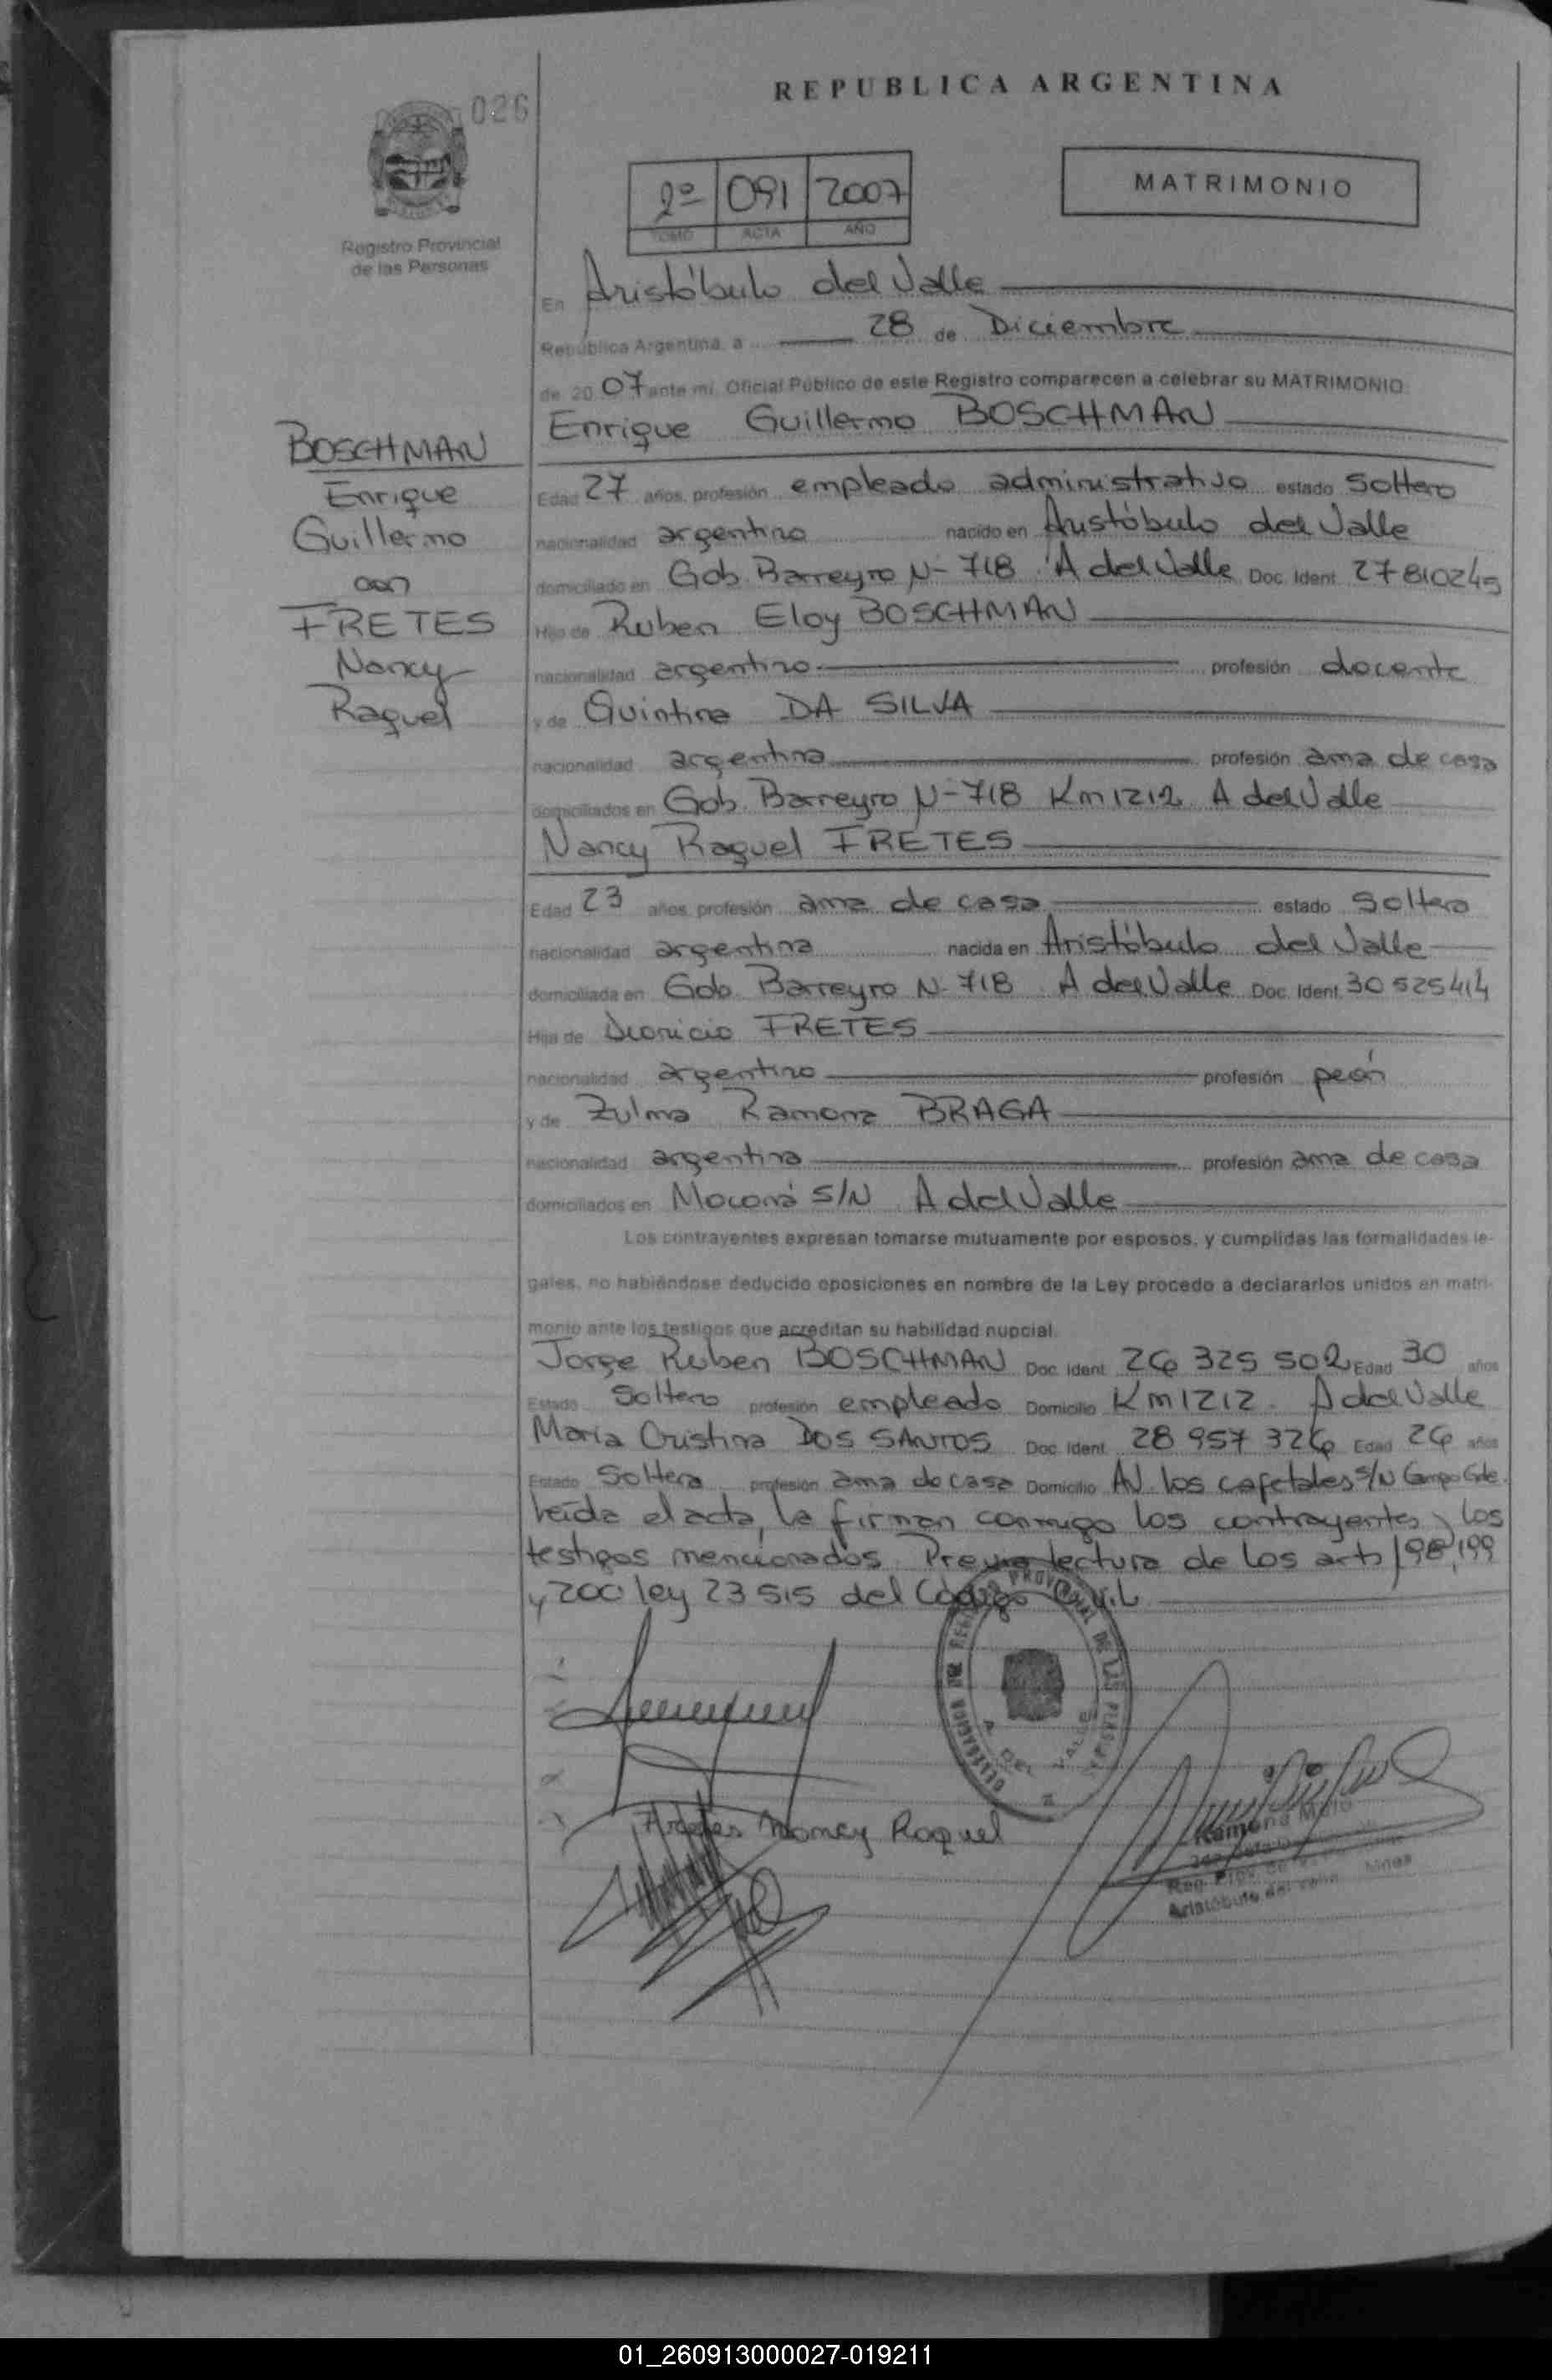 REPUBLICA ARGENTINA
026
MATRIMONIO
2º 091 2007
TOMO ACTA AÑO
Registro Provincial
de las Personas
En Aristóbulo del Valle
República Argentina, a 28 de Diciembre
de 20 07 ante mi, Oficial Público de este Registro comparecen a celebrar su MATRIMONIO:
Enrique Guillermo BOSCHMAN
BOSCHMAN
Enrique
Guillermo
con
FRETES
Nancy
Raquel
Edad 27 años, profesión empleado administrativo estado Soltero
nacionalidad argentino nacido en Aristóbulo del Valle
domiciliado en Gob. Barreyro N- 718 A del Valle Doc. Ident. 27810245
Hijo de Ruben Eloy BOSCHMAN
nacionalidad argentino profesión docente
y de Quintina DA SILVA
nacionalidad argentina profesión ama de casa
domiciliados en Gob. Barreyro N-718 Km 1212 A del Valle
Nancy Raquel FRETES
Edad 23 años, profesión ama de casa estado Soltera
nacionalidad argentina nacida en Aristóbulo del Valle
domiciliada en Gob. Barreyro N- 718 A del Valle Doc. Ident. 30525414
Hija de Dionicio FRETES
nacionalidad argentino profesión peón
y de Zulma Ramona BRAGA
nacionalidad argentina profesión ama de casa
domiciliados en Moconá S/N A del Valle
Los contrayentes expresan tomarse mutuamente por esposos, y cumplidas las formalidades le-
gales, no habiéndose deducido oposiciones en nombre de la Ley procedo a declararlos unidos en matri-
monio ante los testigos que acreditan su habilidad nupcial.
Jorge Ruben BOSCHMAN Doc. Ident. 26 325 502 Edad 30 años
Estado Soltero profesión empleado Domicilio Km 1212. A del Valle
Maria Cristina DOS SANTOS Doc. Ident. 28 957 326 Edad 26 años
Estado Soltera profesión ama de casa Domicilio Av. los cafetales S/N Campo Gde.
Leída el acta, la firman conmigo los contrayentes y los
testigos mencionados. Previa lectura de los arts 198, 199
y 200 ley 23 515 del Código Civil
DELEGACION DEL REGISTRO PROVINCIAL DE LAS PERSONAS
A. DEL VALLE
Nancy Raquel
Ramona
Reg. Prov. de
Aristóbulo del Valle
01_260913000027-019211